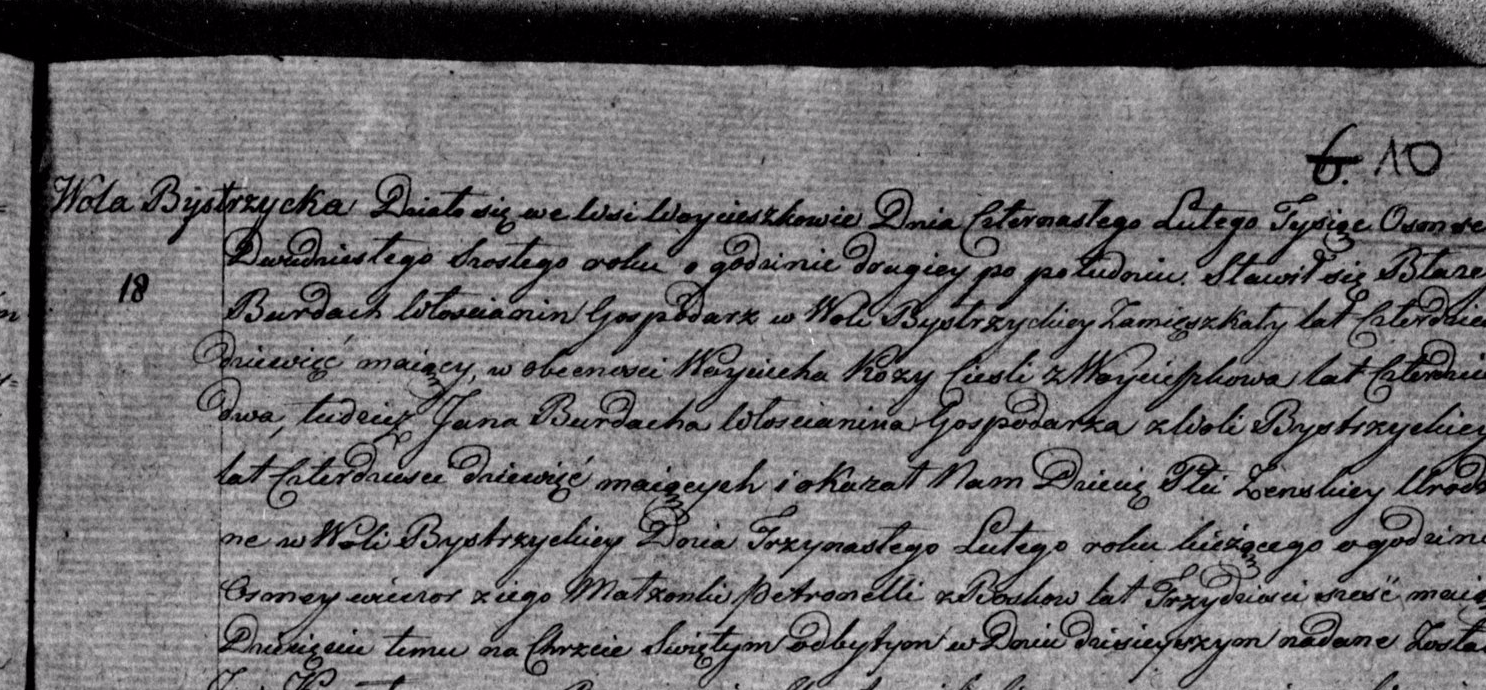 6. 10
Wola Bystrzycka Działo się we Wsi Woycieszkowie Dnia Czternastego Lutego Tysiąc Osmse
Dwudziestego Szostego roku o godzinie drugiey po południu. Stawił się Błaze
18
Burdach Włoscianin Gospodarz w Woli Bystrzyckiey Zamięszkały lat Czterdzie
dziewięć maiący, w obecnosci Woyciecha Kozy Ciesli z Woycieszkowa lat Czterdzie
dwa, tudziez Jana Burdacha Włoscianina Gospodarza z Woli Bystrzyckiey
lat Czterdziesci dziewięć maiących i okazał Nam Dziecię Płci Zenskiey Urodz
ne w Woli Bystrzyckiey Dnia Trzynastego Lutego roku bieżącego o godzini
Osmey wieczor z iego Małzonki Petronelli z lat Trzydziesci sześć maią
Dziecięciu temu na Chrzcie Swiętym odbytym w Dniu dzisieyszym nadane Zosta